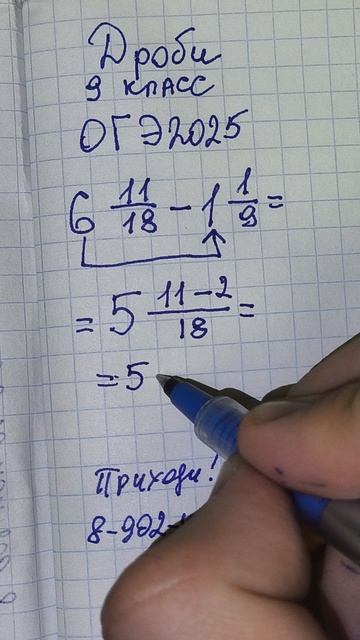 Дроби
9 класс
ОГЭ 2025
6 11/18 - 1 1/9 =
= 5 (11-2)/18 =
= 5
Приходи!
8-902-